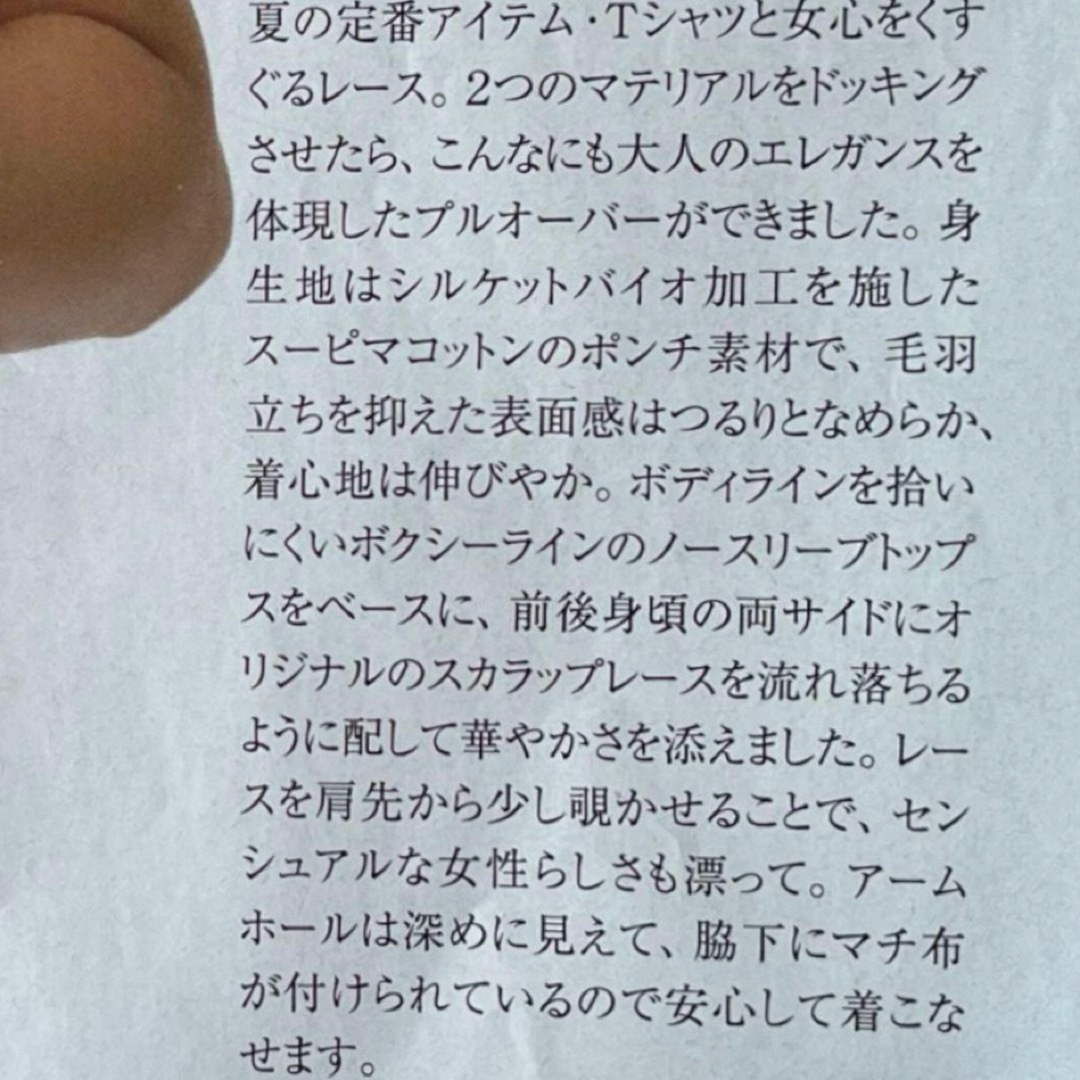 夏の定番アイテム・Tシャツと女心をくす
ぐるレース。2つのマテリアルをドッキング
させたら、こんなにも大人のエレガンスを
体現したプルオーバーができました。身
生地はシルケットバイオ加工を施した
スーピマコットンのポンチ素材で、毛羽
立ちを抑えた表面感はつるりとなめらか、
着心地は伸びやか。ボディラインを拾い
にくいボクシーラインのノースリーブトップ
スをベースに、前後身頃の両サイドにオ
リジナルのスカラップレースを流れ落ちる
ように配して華やかさを添えました。レー
スを肩先から少し覗かせることで、セン
シュアルな女性らしさも漂って。アーム
ホールは深めに見えて、脇下にマチ布
が付けられているので安心して着こな
せます。